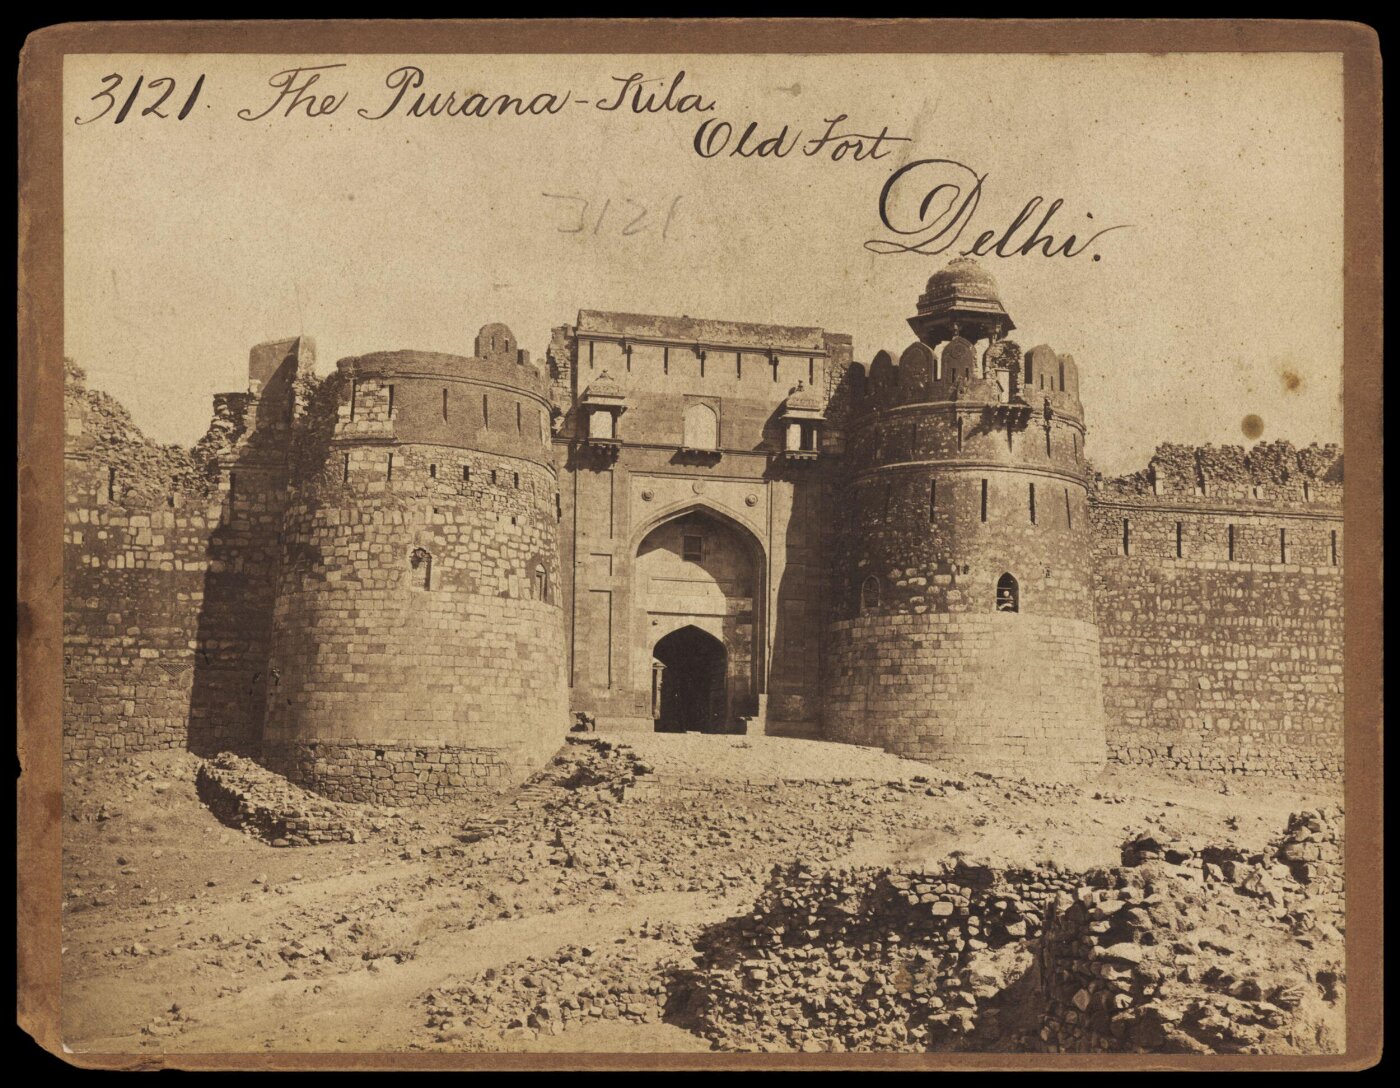 3121. The Purana-Kila.
Old Fort
Delhi.
3121.